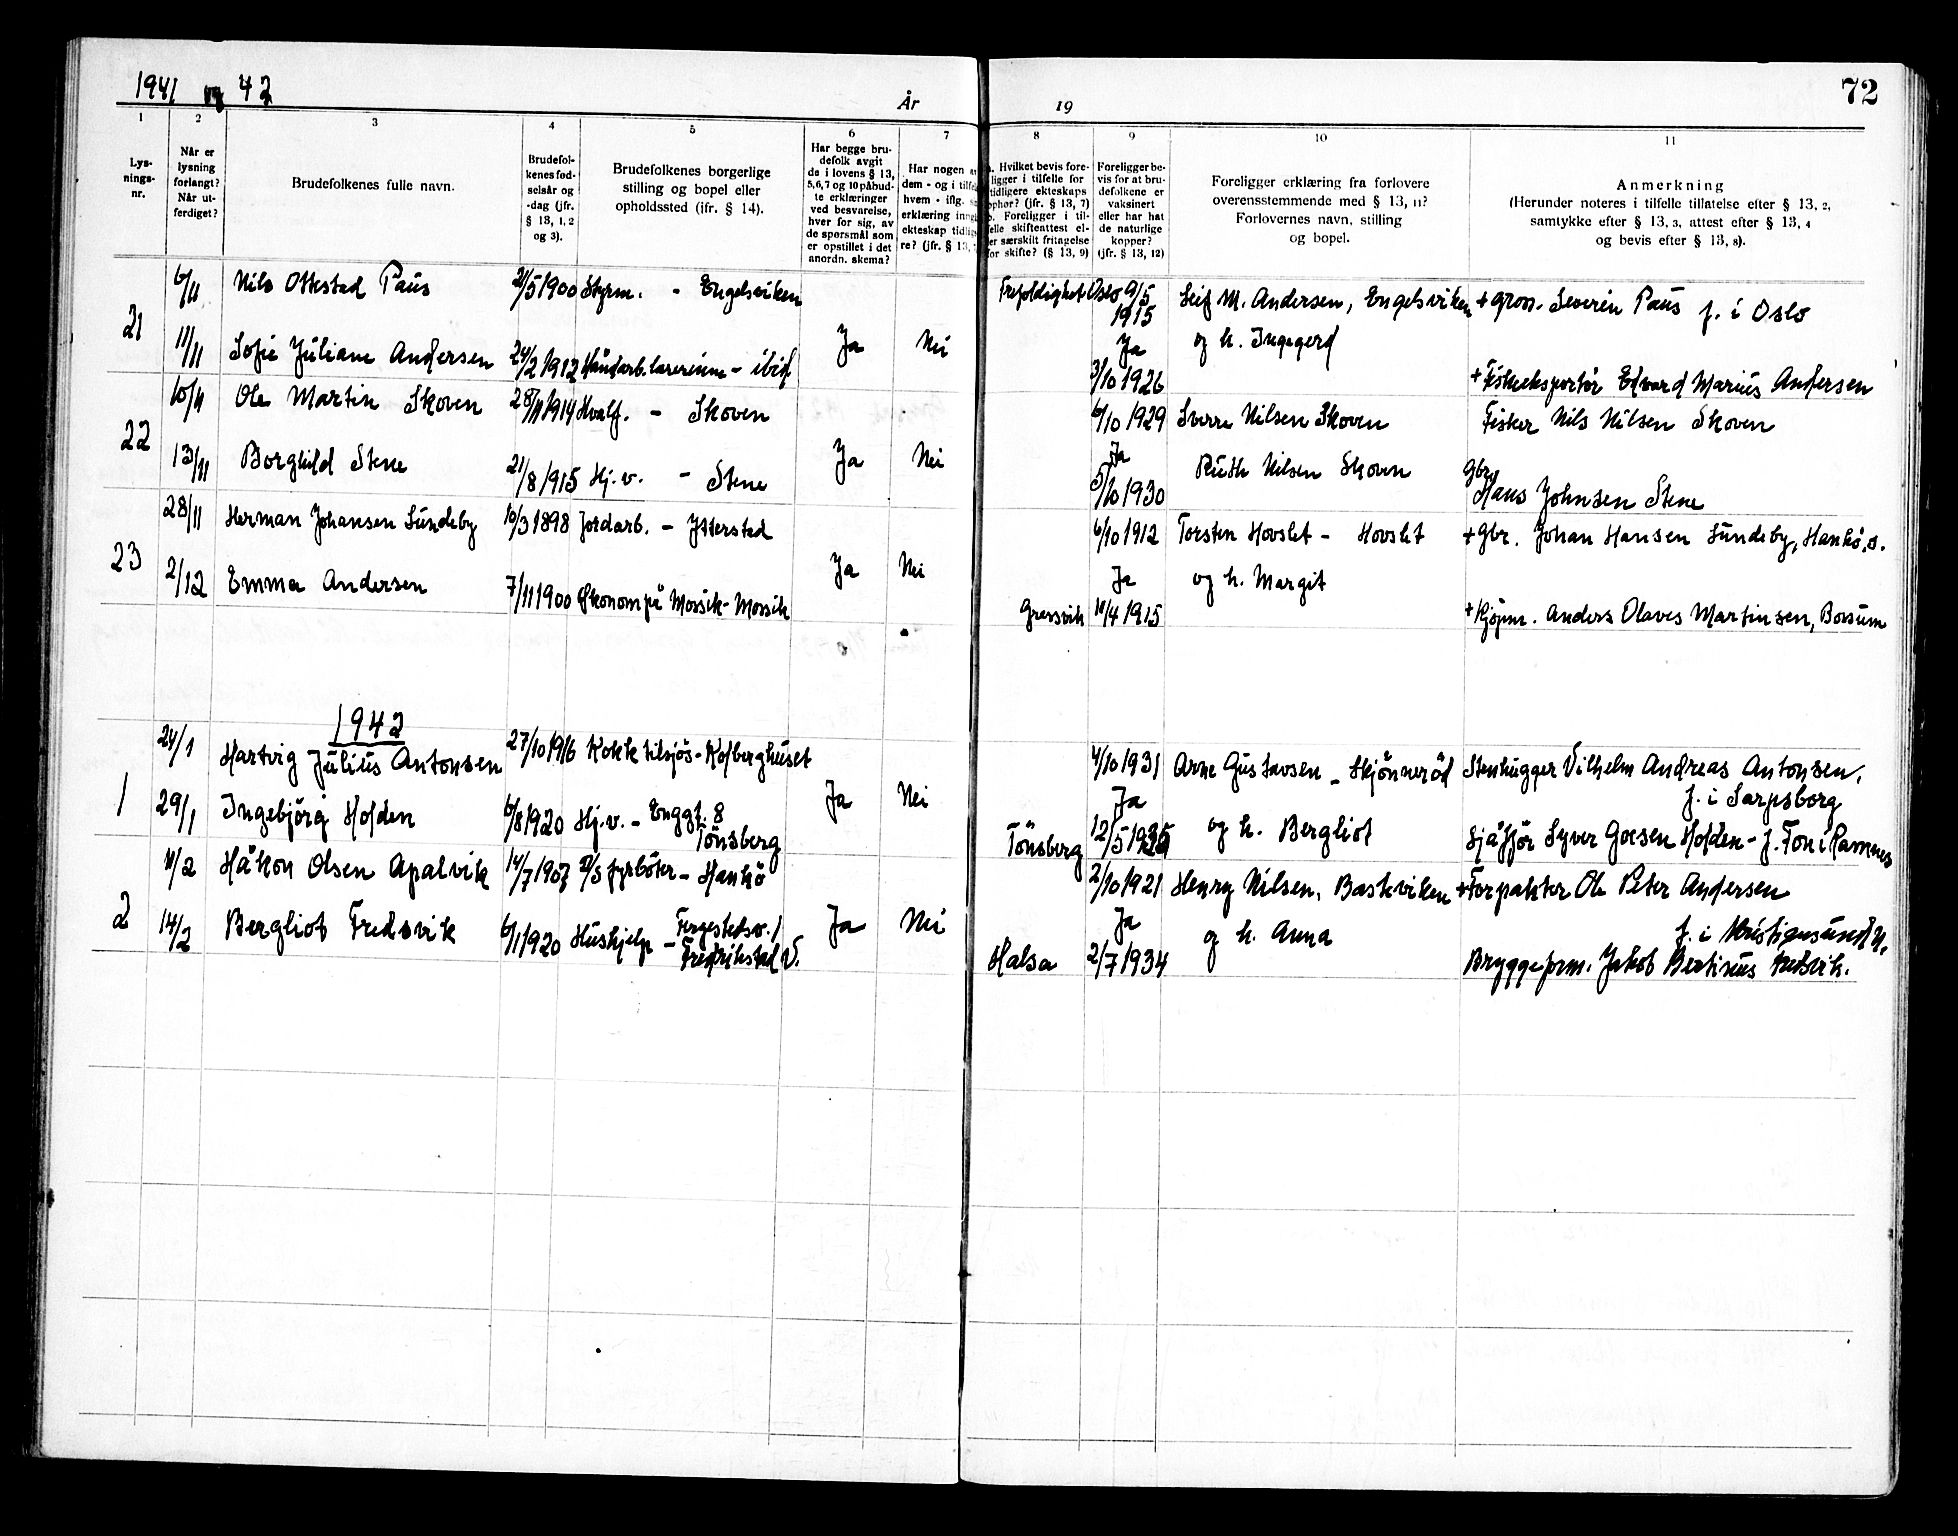 1941 og 42
År
19
72
1 2 3 4 5 6 7 8 9 10 11
Lys-
nings-
nr.
Når er
lysning
forlangt?
Når ut-
ferdiget?
Brudefolkenes fulle navn.
Brudefol-
kenes fød-
selsår og
-dag (jfr.
§ 13, 1, 2
og 3).
Brudefolkenes borgerlige
stilling og bopel eller
opholdssted (ifr. § 14).
Har begge bru-
defolk avgit
de i lovens § 13,
5,6,7 og 10 påbud-
te erklæringer
ved besvarelse,
hver for sig, av
de spørsmål som
er opstillet i det
anordn. skema?
Har nogen a
dem - og i tilfel
hvem - iflg. s
erklæring inng
ekteskap tidlig
re? (jfr. § 13,
a. Hvilket bevis fore-
ligger i tilfelle for
tidligere ekteskaps
ophør? (jfr. § 13, 7)
b. Foreligger i til-
felle skifteattest el-
ler særskilt fritagelse
for skifte? (§ 13, 9)
Foreligger be-
vis for at bru-
defolkene er
vaksinert
eller har hat
de naturlige
kopper?
(jfr. § 13, 12)
Foreligger erklæring fra forlovere
overensstemmende med § 13, 11?
Forlovernes navn, stilling
og bopel.
Anmerkning
(Herunder noteres i tilfelle tillatelse efter § 13, 2,
samtykke efter § 13, 3, attest efter § 13, 4
og bevis efter § 13, 8).
6/11 Nils Ottestad Paus 21/5 1900 Styrm. - Engelsviken Trefoldighet Oslo 9/5 1915 Leif M. Andersen, Engelsviken + gros. Severin Paus f. i Oslo
21 Ja Nei Ja og h. Ingegerd
11/11 Sofie Juliane Andersen 24/2 1912 Håndarb.lærerinne - ibid 3/10 1926 + Fiskeeksportør Edvard Marius Andersen
10/11 Ole Martin Skoven 28/11 1914 Hvalf. - Skoven 6/10 1929 Sverre Nilsen Skoven Fisker Nils Nilsen Skoven
22 Ja Nei Ja Ruth Nilsen Skoven
13/11 Borghild Stene 21/8 1915 Hj.v. - Stene 5/10 1930 Gbr. Hans Johnsen Stene
28/11 Herman Johansen Sundeby 10/3 1898 Jordarb. - Ytterstad 6/10 1912 Torsten Hovslet - Hovslet + Gbr. Johan Hansen Sundeby, Hankø, s.
23 Ja Nei Ja og h. Margit
2/12 Emma Andersen 7/11 1900 Økonom på - Gressvik 11/4 1915 + Kjøpm. Anders Olaves Martinsen, Borsum
1942
24/1 Hartvig Julius Antonsen 27/10 1916 Kokk tilsjøs - Kolberghuset 4/10 1931 Arne Gustavsen - Skjønnerød Stenhugger Vilhelm Andreas Antonsen,
f. i Sarpsborg
1 Ja Nei Ja og h. Bergliot
29/1 Ingebjørg Hofden 6/8 1920 Hj.v. - Enggt. 8
Tönsberg Tönsberg 12/5 1935 Sjåffør Syver Hofden - f. Ton i Ramnes
11/2 Håkon Olsen Apalvik 14/7 1907 D/S fyrbøter - Hankø 2/10 1921 Henry Nilsen, Bastviken + Forpakter Ole Peter Andersen
f. i Kristiansund N.
2 Ja Nei Ja og h. Anna
14/2 Bergliot Fredsvik 6/1 1920 Hushjelp -
Fredrikstad V. Halsa 2/7 1934 Bryggeform. Jakob Bertinus Fredsvik.